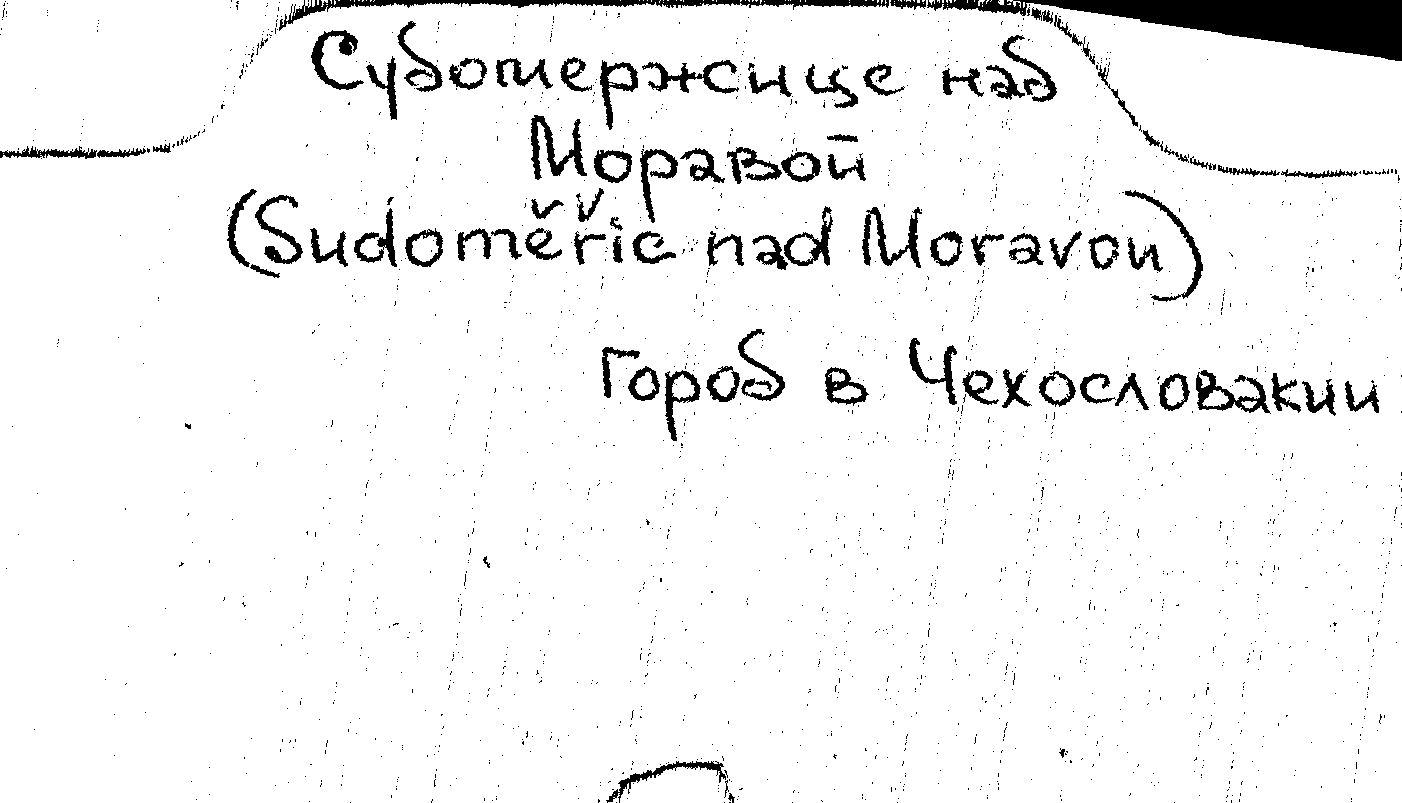 Судомержице над
Моравой
(Sudoměřic nad Moravou)
Город в Чехословакии